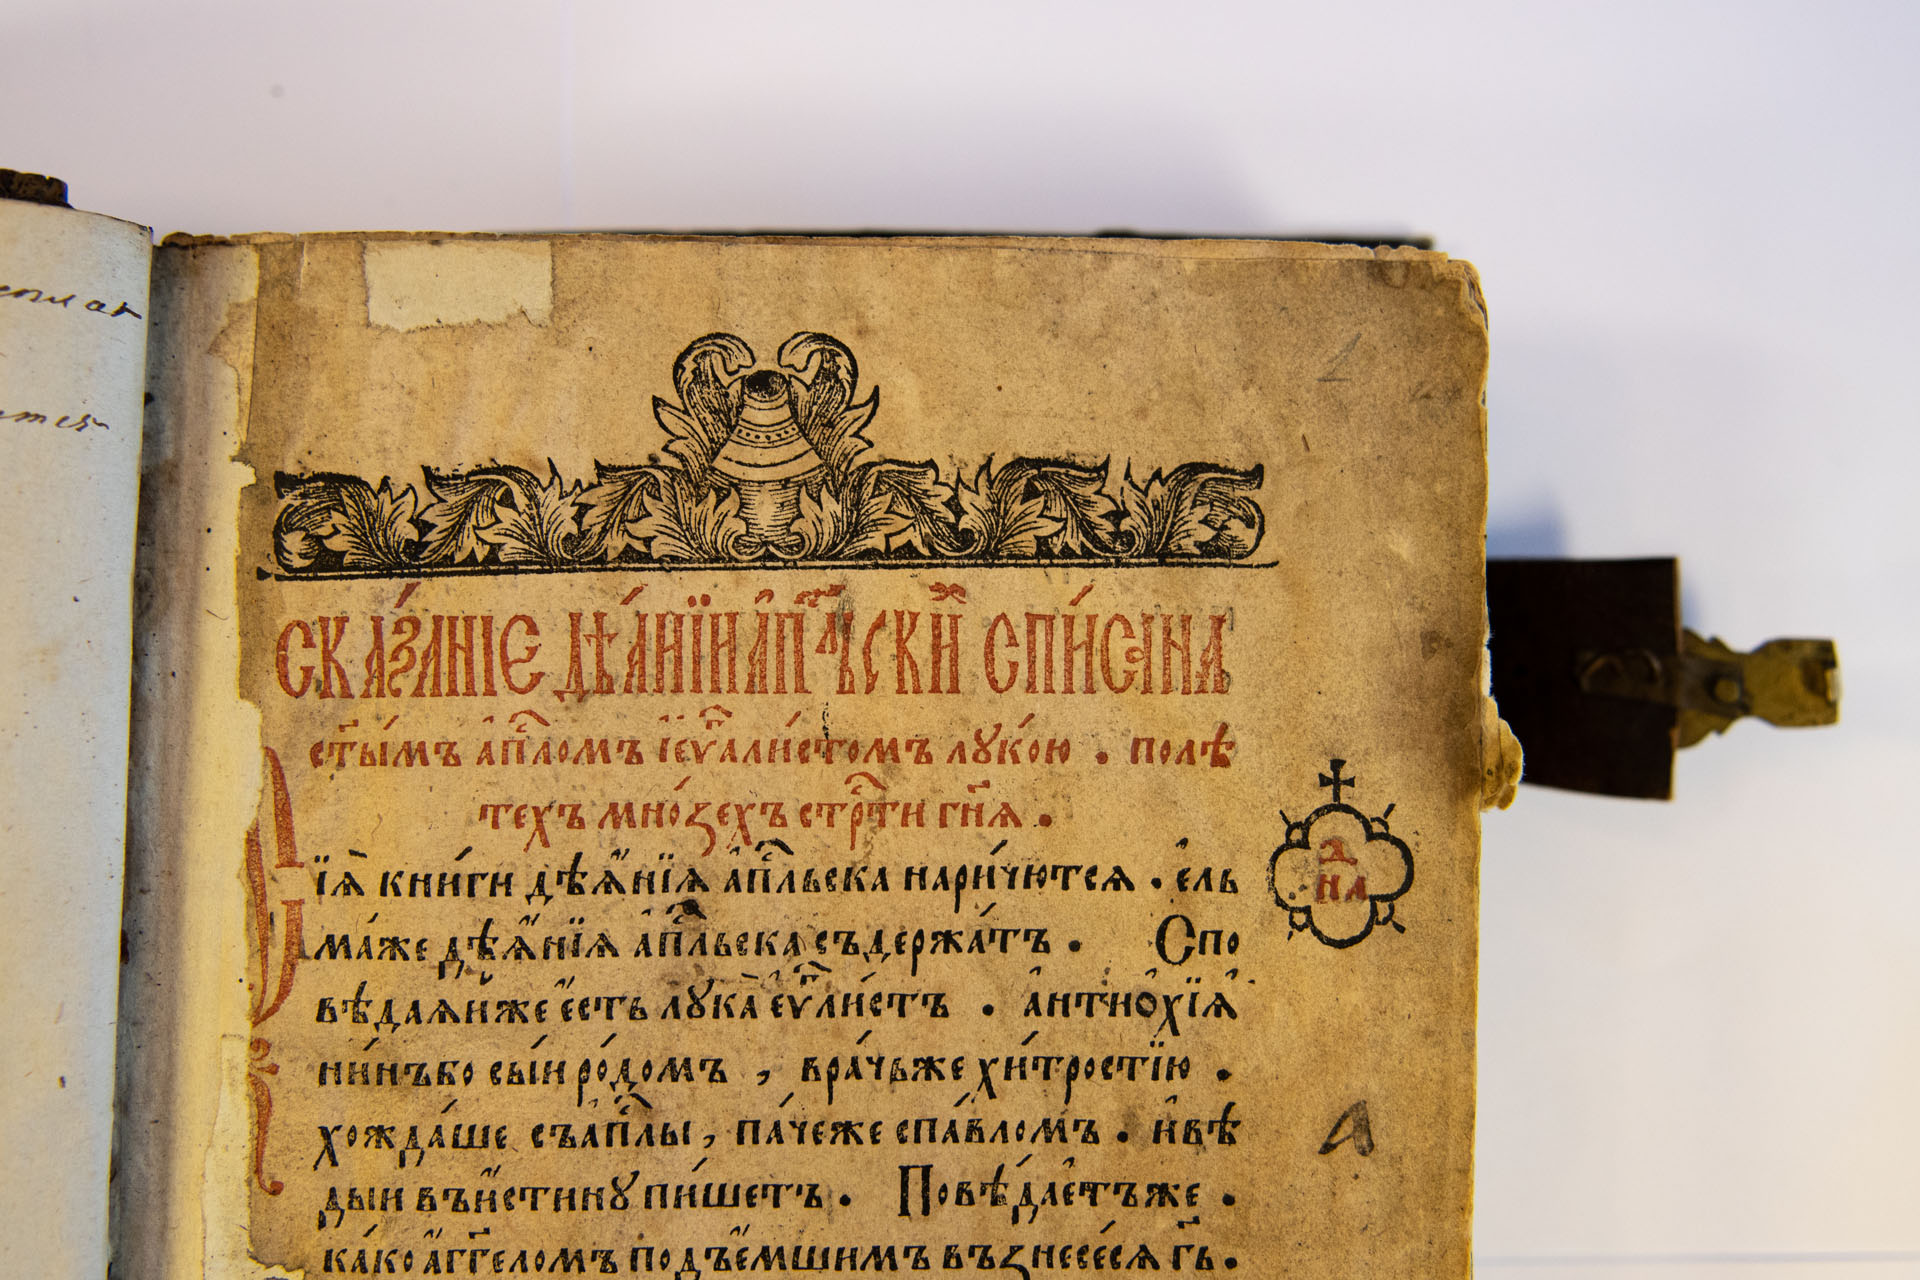 сказанїе дѣанїи ап҃льски́й спи́сана
ст҃ы́мъ ап҃ломъ їеѵ҃али́стомъ лꙋко́ю . полѣ
техъ мно́зехъ стр҃ти гн҃я .
їѧ̀ кни́ги дѣѧ́нїѧ ап҃льска нари́чютсѧ . є́ль
ма́же дѣѧ́нїѧ ап҃льска съдержа́тъ . Спо
вѣдаѧ́йже є́сть лꙋка̀ еѵ҃ли́стъ . а҆нтио́хїѧ
ни́нъбо сы́й ро́домъ , вра́чьже хи́тростїю .
хожда́ше съап҃лы , па́чеже спа́вломъ . и҆вѣ
дыи въи́стинꙋ пи́шетъ . Повѣ́даетъже .
ка́ко а҆гг҃еломъ подъе́мшимъ възнесе́сѧ гь҃ .
д
на
А